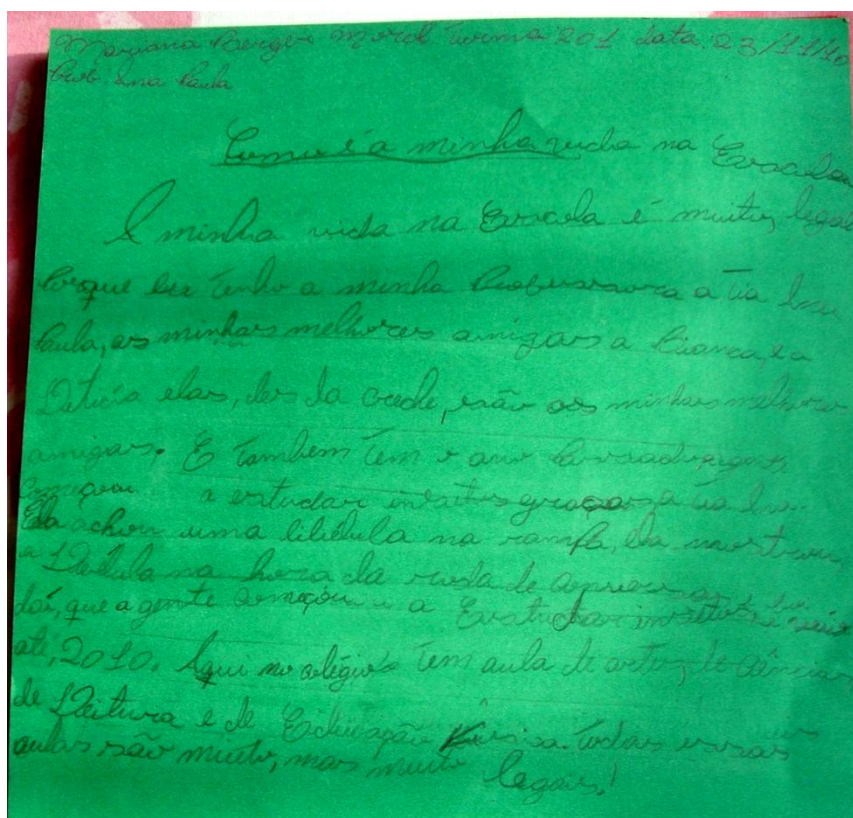 Mariana Berger Morel turma: 201 data: 23/11/10
Prof. Ana Paula
Como é a minha vida na Escola
A minha vida na Escola é muito, legal
Porque eu tenho a minha Professora a tia Ana
Paula, as minhas melhores amigas a Bianca, e a
Letícia elas, des da creche, são as minhas melhores
amigas. E tambem tem o ano Passado a gente
começou a estudar insetos graças a tia Ana.
Ela achou uma libélula na rampa, Ela mostrou
a Libélula na hora da roda de
daí, que a gente começou a Estudar insetos e
até, 2010. Aqui no colégio tem aula de artes, de ciências
de Leitura e de Educação Física. todas essas
aulas são muito, mas muito legais!